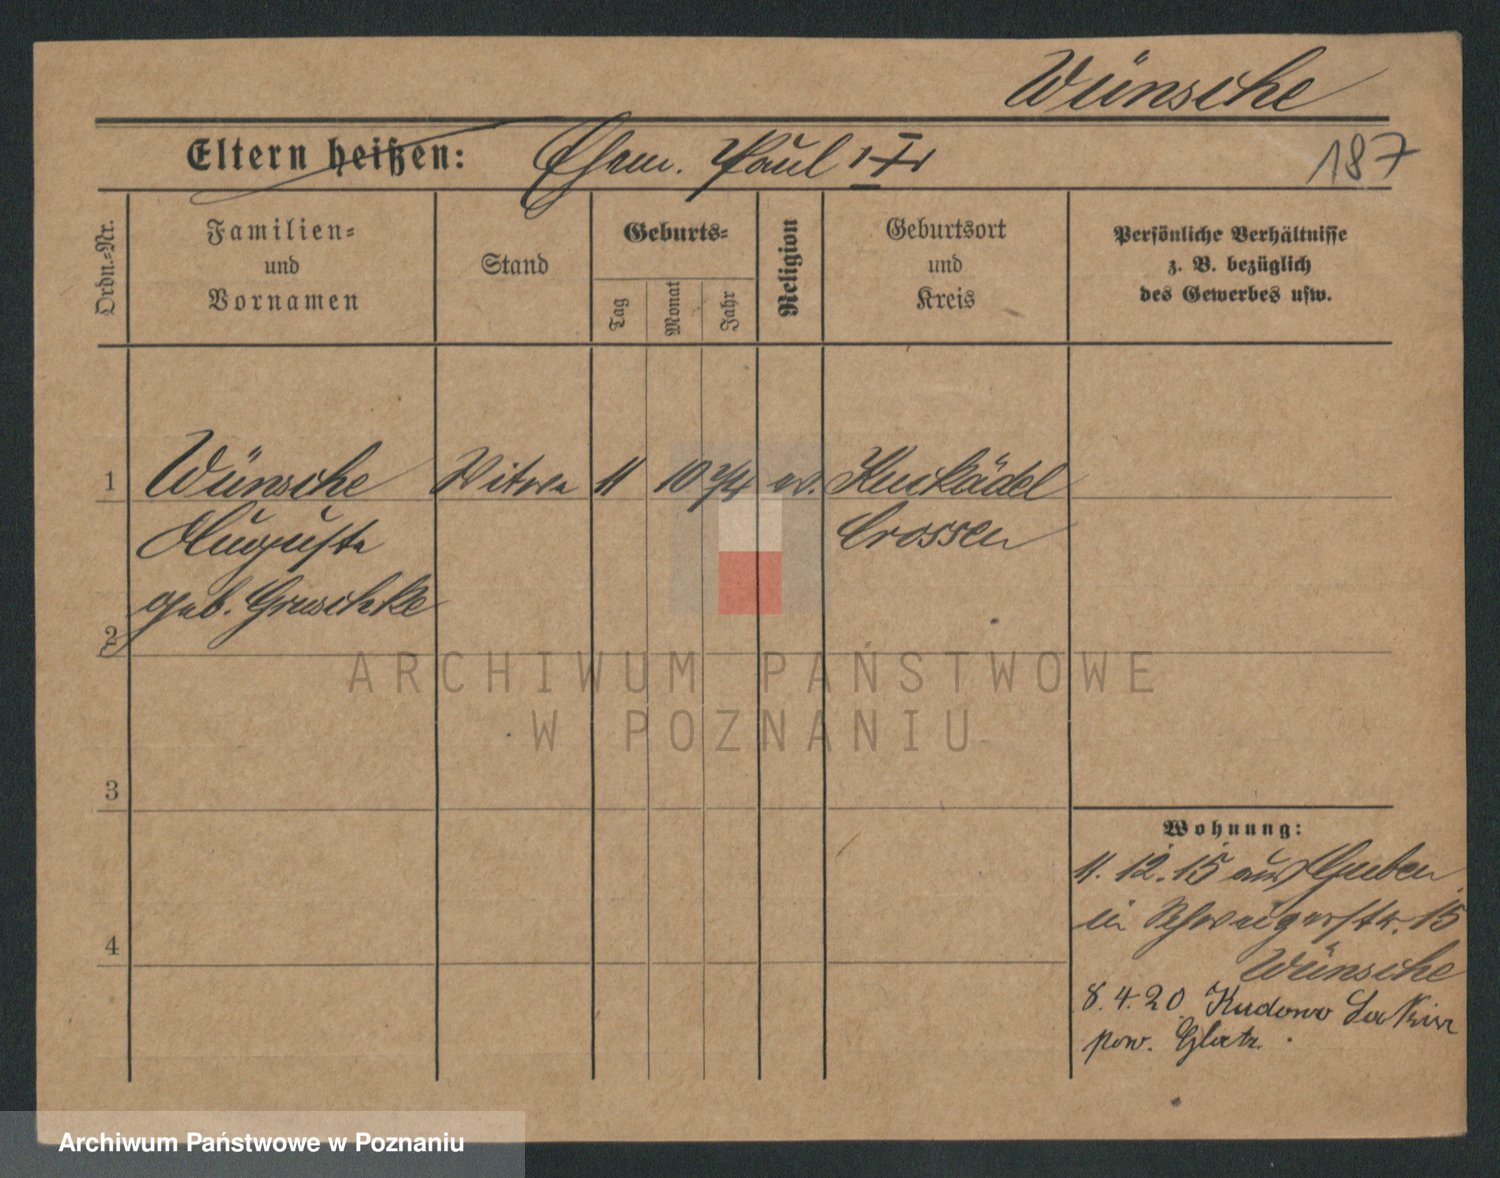 Wünsche
Eltern heißen: Ehem. Paul I
187
Ordn.-Nr.
Familien-
und
Vornamen
Stand
Geburts-
Tag
Monat
Jahr
Religion
Geburtsort
und
Kreis
Persönliche Verhältnisse
z. B. bezüglich
des Gewerbes usw.
1 Wünsche Witwe 11 10 74 ev. Kuckädel
Auguste Crossen
geb. Gruschke
2
ARCHIWUM PAŃSTWOWE
W POZNANIU
3
Wohnung:
11.12.15 aus Guben
in Schwaigerstr. 15
4
Wünsche
8.4.20 Kudowo
pow. Glatz.
Archiwum Państwowe w Poznaniu